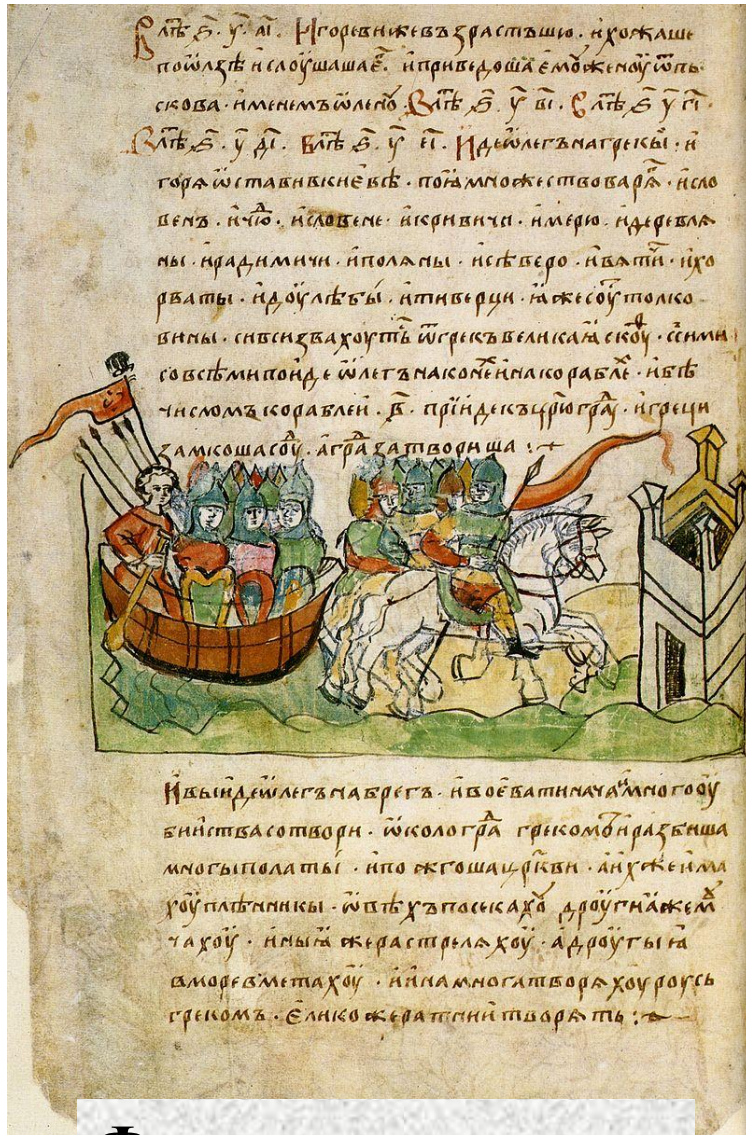 В лѣⷮ ҂ѕ҃ · у҃ · а҃і · Игореви же възрастъшю · и хожаше
по ѡлзѣ и слоушаша еⷢ · и приведоша емоу женоу ѿ пь
скова · именемъ ѡленоу · В лѣⷮ ҂ѕ҃ у҃ в҃і · В лѣⷮ ҂ѕ҃ у҃ г҃і ·
В лѣⷮ ҂ѕ҃ · у҃ д҃і · В лѣⷮ ҂ѕ҃ · у҃ е҃і · Иде ѡлегъ на грекы · и
горѧ ѡставив киевѣ · поꙗ множество варѧ · и сло
венъ · и чюⷣ · и словене · и кривичи · и мерю · и деревлѧ
ны · и радимичи · и полѧны · и сѣверо · и вѧтиⷱ · и хо
рваты · и доулѣбы · и тиверци · ꙗже соуⷮ толко
вины · си вси звахоутьⷭ ѿ грекъ великаꙗ скоуⷴ · с сими
со всѣми поиде ѡлегъ на конеⷯ и на кораблеⷯ · и бѣ
числомъ кораблеи · в҃ · прииде къ цр҃ю граⷣ · и греци
замкоша соуⷣ · а граⷣ затвориша :
И выиде ѡлегъ на брегъ · и воевати нача и много оу
биства сотвори · ѡколо граⷣ грекомъ и разбиша
многы полаты · и пожгоша цр҃кви · а ихже има
хоу плѣнникы · ѡвѣхъ посекахоу дроугиꙗ же моуⷱ
чахоу · иныꙗ же растрелѧхоу · а дроугыꙗ
в море вметахоу · и ина многа творѧхоу роусь
грекомъ · елико же ратнии творѧть :